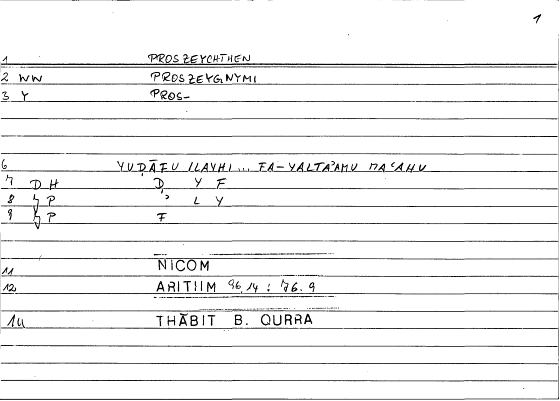 1
1 PROSZEYCHTHEN
2 WW PROSZEYGNYMI
3 Y PROS-
6 YUḌĀFU ILAYHI... FA-YALTAʾAMU MAʿAHU
7 D H Ḍ Y F
8 P ʾ L Y
9 P F
11 NICOM
12 ARITIIM 96.14 : 76.9
14 THĀBIT B. QURRA